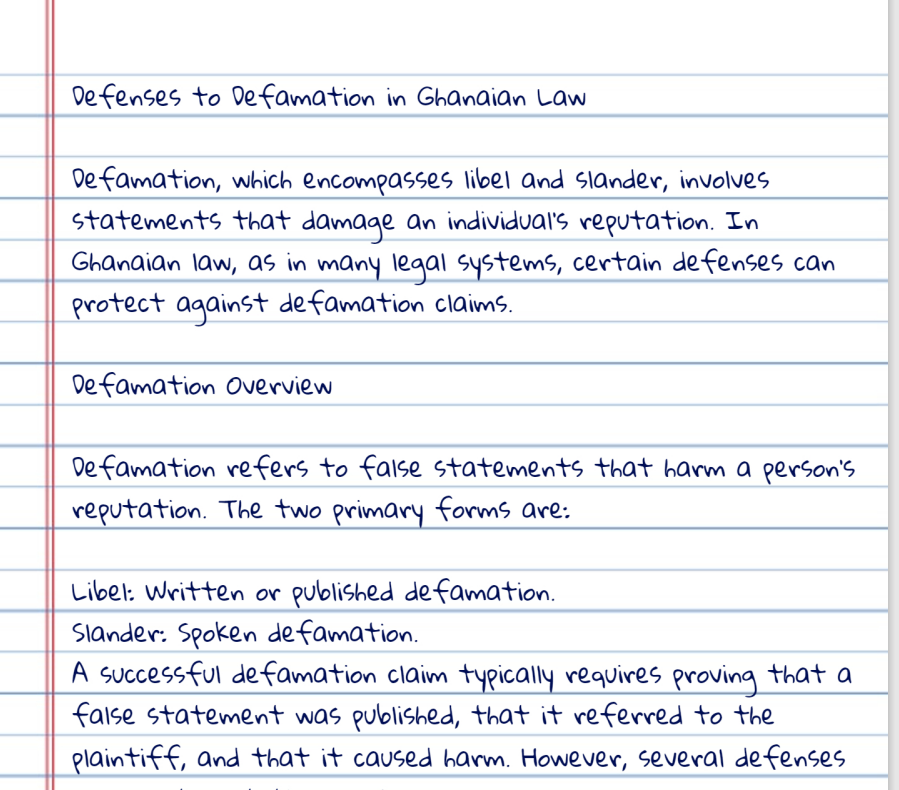 Defenses to Defamation in Ghanaian Law
Defamation, which encompasses libel and slander, involves
statements that damage an individual's reputation. In
Ghanaian law, as in many legal systems, certain defenses can
protect against defamation claims.
Defamation Overview
Defamation refers to false statements that harm a person's
reputation. The two primary forms are:
Libel: Written or published defamation.
Slander: Spoken defamation.
A successful defamation claim typically requires proving that a
false statement was published, that it referred to the
plaintiff, and that it caused harm. However, several defenses